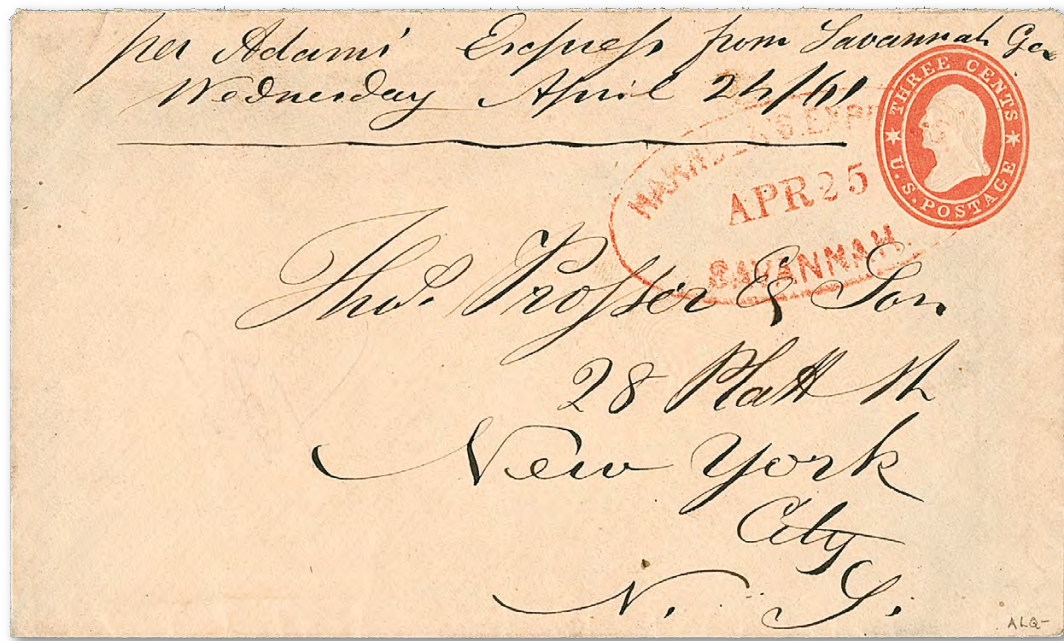 per Adams' Express from Savannah Ga
Wednesday April 24/61
THREE CENTS
U.S. POSTAGE
APR 25
SAVANNAH
Thos. Prosser & Son
28 Platt St
New York
City
N. Y.
ALG-